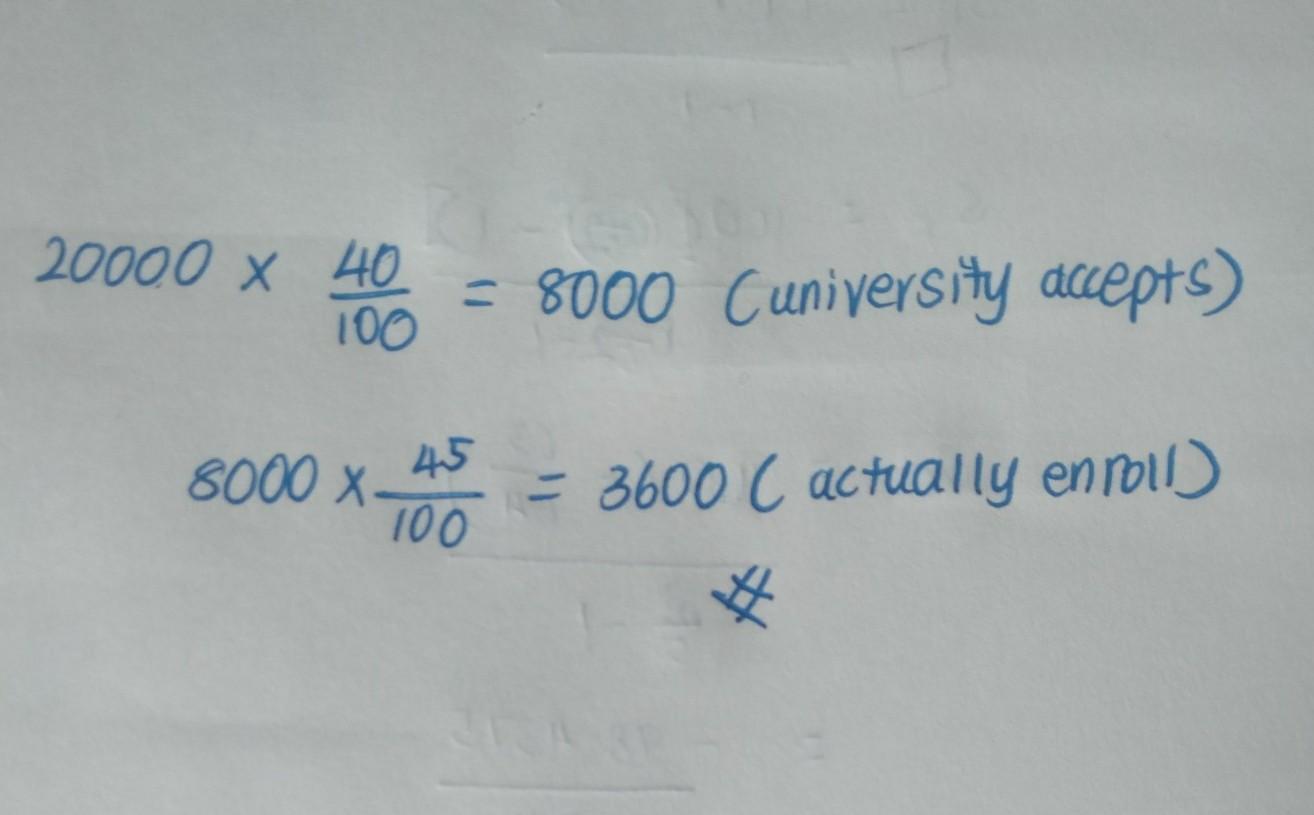 20000 × 40/100 = 8000 (university accepts)
8000 × 45/100 = 3600 (actually enroll)
#